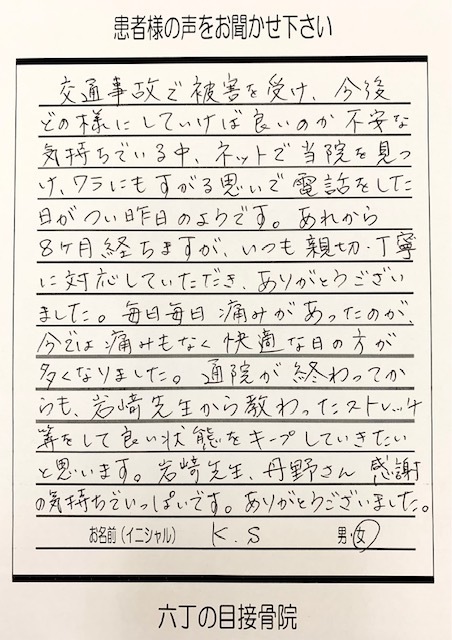 患者様の声をお聞かせ下さい
交通事故で被害を受け、今後
どの様にしていけば良いのか不安な
気持ちでいる中、ネットで当院を見つ
け、ワラにもすがる思いで電話をした
日がつい昨日のようです。あれから
8ヶ月経ちますが、いつも親切・丁寧
に対応していただき、ありがとうござい
ました。毎日毎日痛みがあったのが、
今では痛みもなく快適な日の方が
多くなりました。通院が終わってか
らも、岩崎先生から教わったストレッチ
等をして良い状態をキープしていきたい
と思います。岩崎先生、丹野さん感謝
の気持ちでいっぱいです。ありがとうございました。
お名前(イニシャル) K.S 男・女
六丁の目接骨院